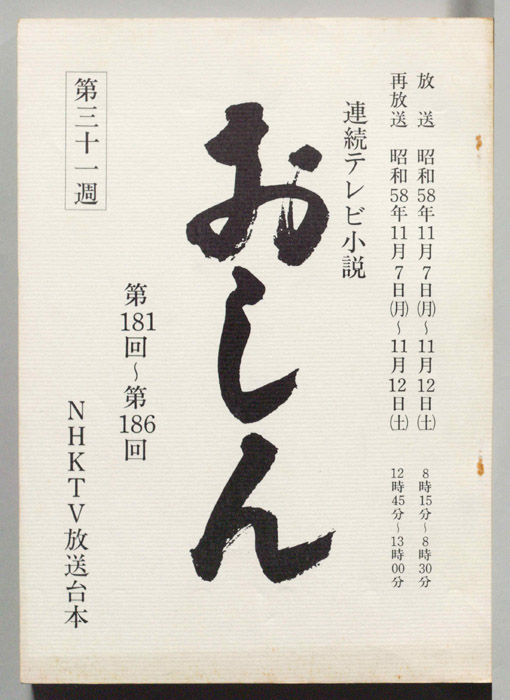 放送 昭和58年11月7日(月)～11月12日(土) 8時15分～8時30分
再放送 昭和58年11月7日(月)～11月12日(土) 12時45分～13時00分
連続テレビ小説
おしん
第181回～第186回
第三十一週
NHKTV放送台本